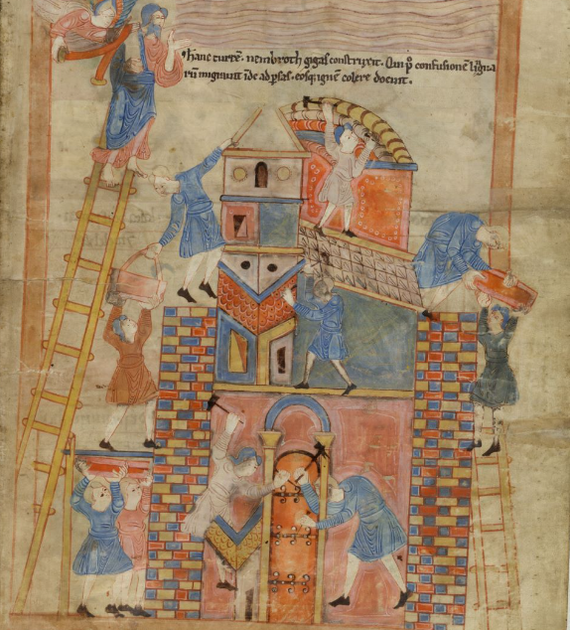 hanc turrē. nembroth gigas construxit. Qui p̄ confusionē ligua
rū migrauit īde ad psas. eosq; ignē colere docuit.